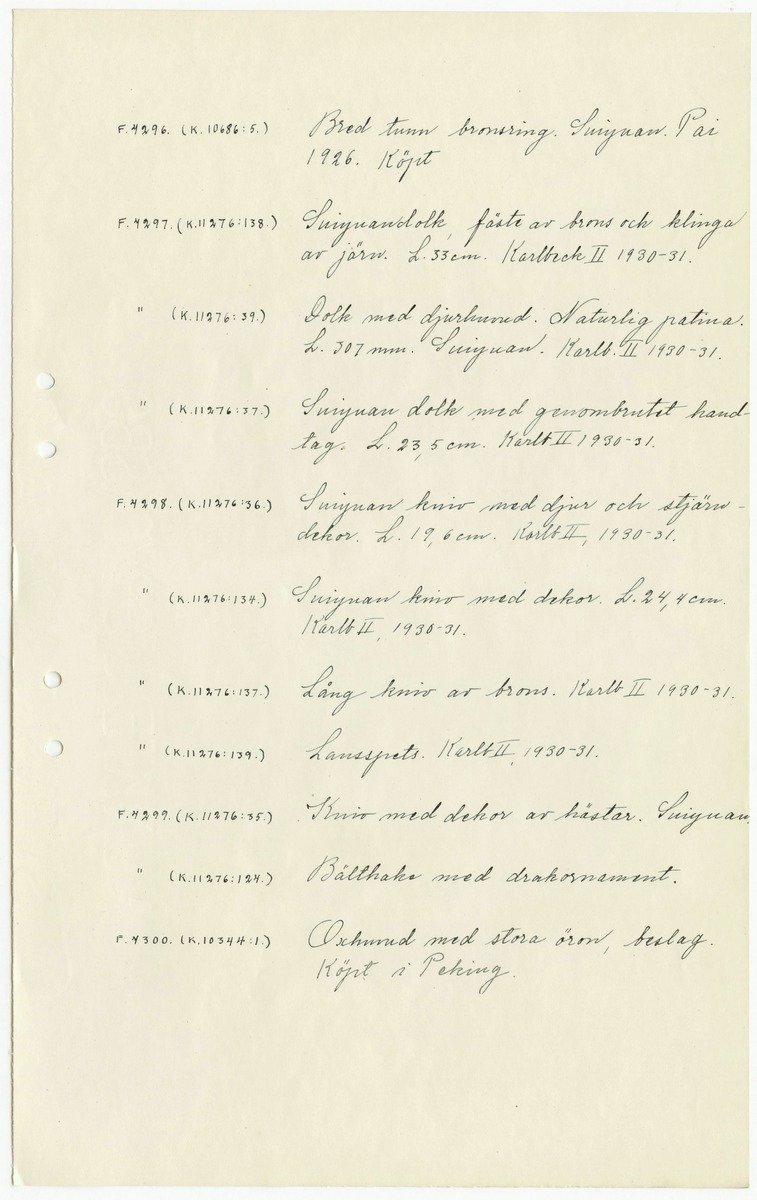 F.4296. (K.10686:5.) Bred tunn bronsring. Suiyuan. Pai
1926. Köpt
F.4297. (K.11276:138.) Suiyuandolk, fäste av brons och klinga
av järn. L. 33 cm. Karlbeck II 1930-31.
" (K.11276:39.) Dolk med djurhuvud. Naturlig patina.
L. 307 mm. Suiyuan. Karlb. II 1930-31.
" (K.11276:37.) Suiyuan dolk med genombrutet hand-
tag. L. 23,5 cm. Karlb II 1930-31.
F.4298. (K.11276:36.) Suiyuan kniv med djur och stjärn-
dekor. L. 19,6 cm. Karlb II, 1930-31.
" (K.11276:134.) Suiyuan kniv med dekor. L. 24,4 cm.
Karlb II, 1930-31.
" (K.11276:137.) Lång kniv av brons. Karlb II 1930-31.
" (K.11276:139.) Lansspets. Karlb II, 1930-31.
F.4299. (K.11276:35.) Kniv med dekor av hästar. Suiyuan.
" (K.11276:124.) Bälthake med drakornament.
F.4300. (K.10344:1.) Oxhuvud med stora öron, beslag.
Köpt i Peking.